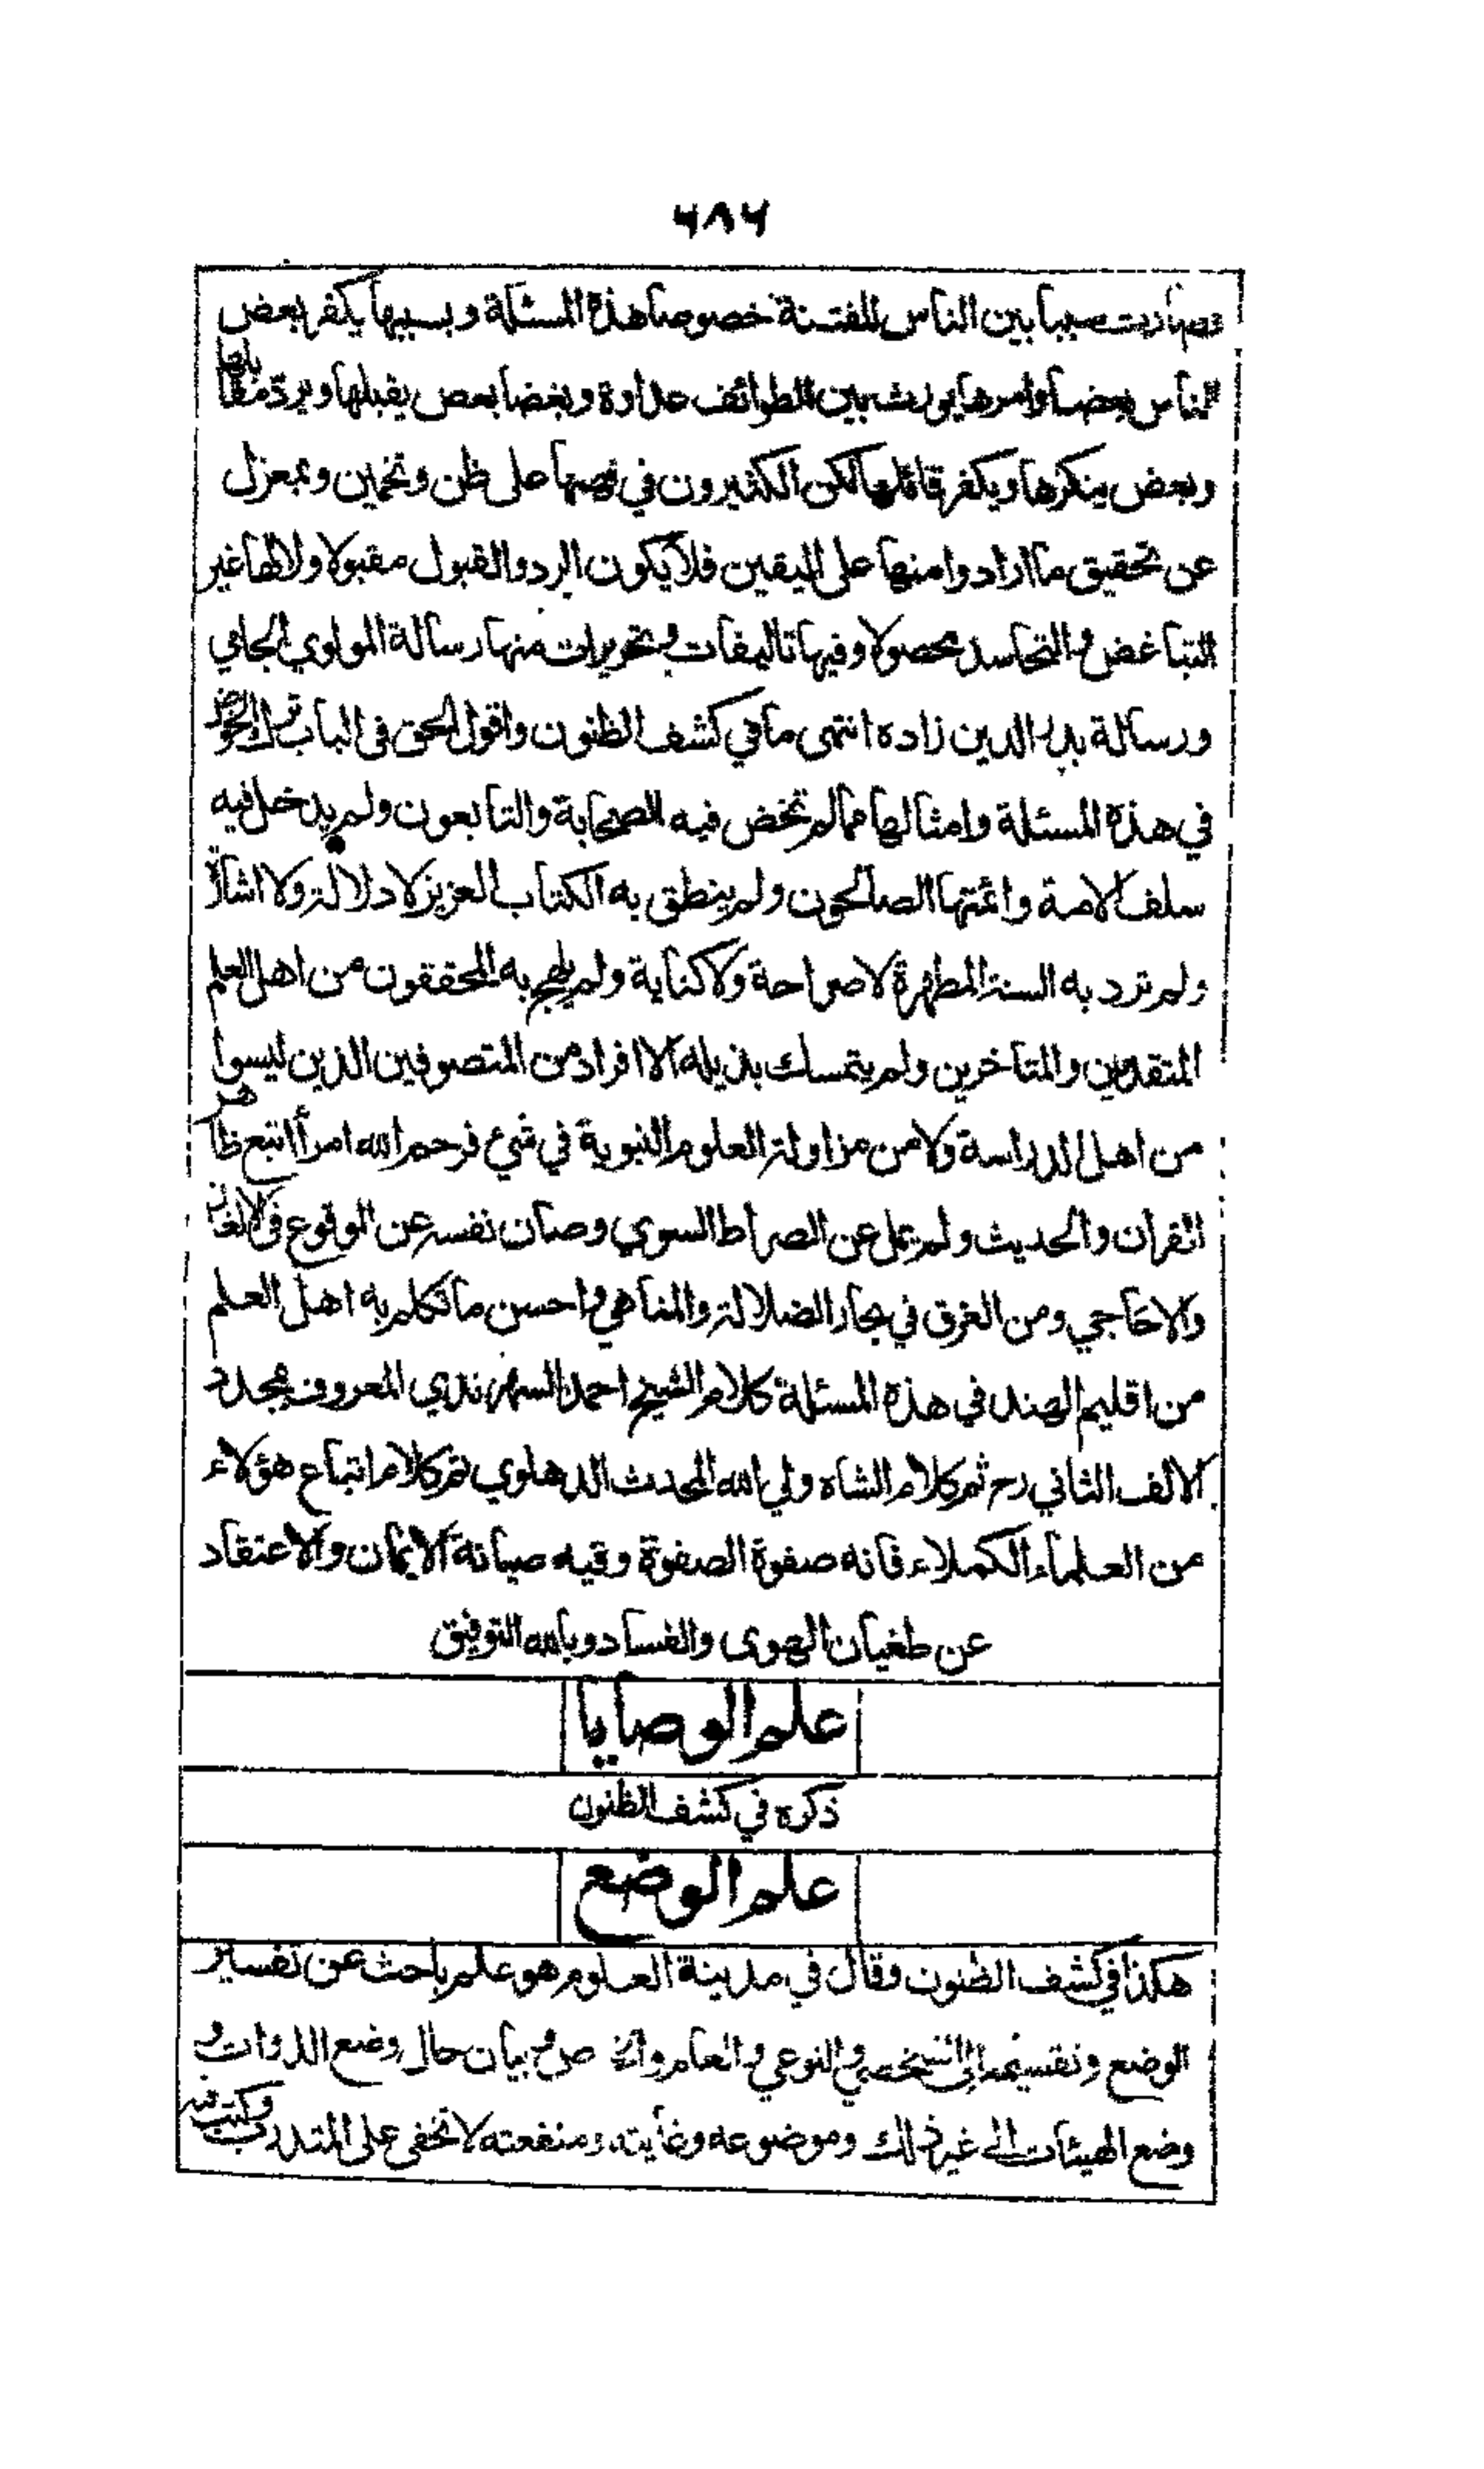 ٦٨٦
فصارت سببا بين الناس للفتنة خصوصا هذه المسئلة وبسببها يكفر بعض
الناس بعضا وامرها يورث بين الطوائف عداوة وبغضا بعض يقبلها ويرد مقابلها
وبعض ينكرها ويكفر قائلها لكن الكثيرون في فهمها على ظن وتخمين وبمعزل
عن تحقيق ما ارادوا منها على اليقين فلا يكون الرد والقبول مقبولا ولا لها غير
التباغض والتحاسد محصولا وفيها تاليفات وتحريرات منها رسالة المولوي الجامي
ورسالة بدر الدين زاده انتهى ما في كشف الظنون واقول الحق في الباب ترك الخوض
في هذه المسئلة وامثالها مما لم تخض فيه الصحابة والتابعون ولم يدخل فيه
سلف الامة وائمتها الصالحون ولم ينطق به الكتاب العزيز لا دلالة ولا اشارة
ولم ترد به السنة المطهرة لا صراحة ولا كناية ولم يلهج به المحققون من اهل العلم
المتقدمين والمتاخرين ولم يتمسك بذيله الا افراد من المتصوفين الذين ليسوا
من اهل الدراسة ولا من مزاولة العلوم النبوية في شئ فرحم الله امرأ اتبع ظاهر
القران والحديث ولم يمل عن الصراط السوي وصان نفسه عن الوقوع في الالغاز
والاحاجي ومن الغرق في بحار الضلالة والمناهي واحسن ما تكلم به اهل العلم
من اقليم الهند في هذه المسئلة كلام الشيخ احمد السهرندي المعروف بمجدد
الالف الثاني رح ثم كلام الشاه ولي الله المحدث الدهلوي ثم كلام اتباع هؤلاء
من العلماء الكملاء فانه صفوة الصفوة وفيه صيانة الايمان والاعتقاد
عن طغيان الهوى والفساد وبالله التوفيق
علم الوصايا
ذكره في كشف الظنون
علم الوضع
هكذا في كشف الظنون وقال في مدينة العلوم هو علم باحث عن تفسير
الوضع وتقسيمه الى الشخصي والنوعي والعام والخاص وبيان حال وضع الذوات و
وضع الهيئات الى غير ذلك وموضوعه وغايته ومنفعته لا تخفى على المتدرب وكتب فيه